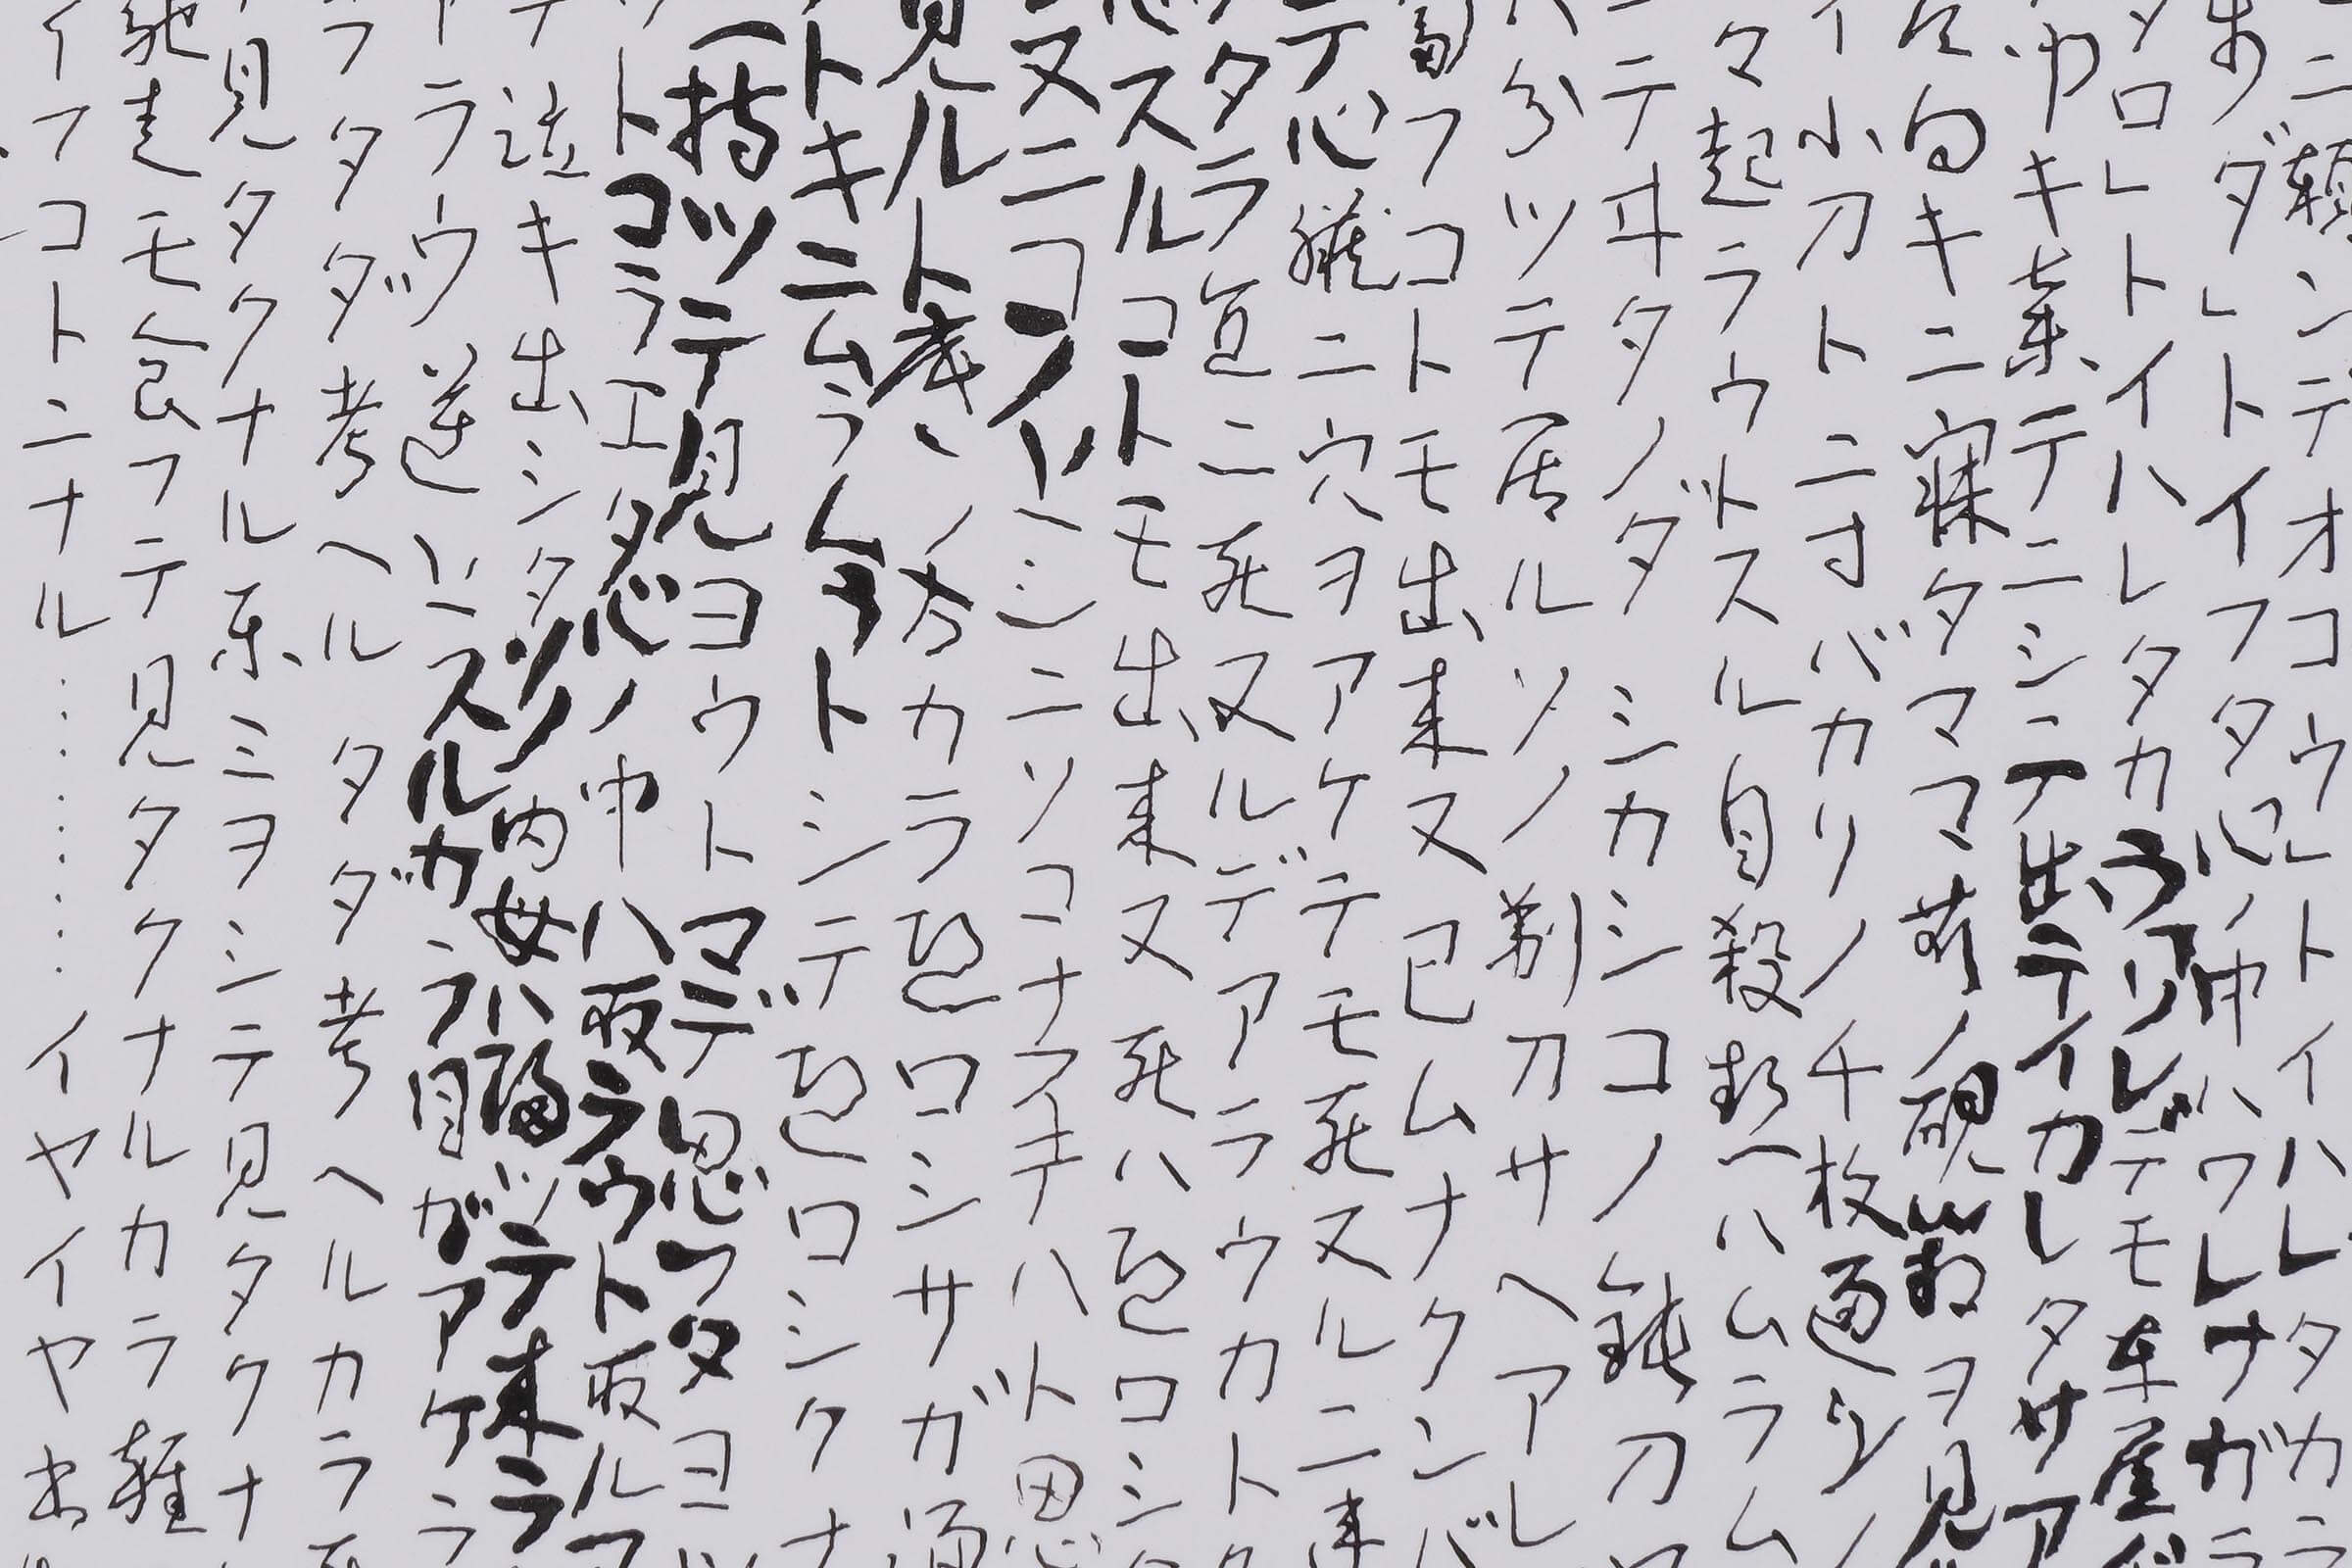 ニ頼ンデオコウ」トイハレタカラ
ダ」トイフタ 心ノ中ハワレナガラ
タロ」トイハレタカ デモ車屋
キ来テニシテ出テイカレタサア
向キニ寐タママ前ノ硯箱ヲ見
イ小刀ト二寸バカリノ千枚通シノ
マ起ラウトスル自殺熱ハムラムラ
ニテヰタノダ シカシコノ鈍刀
ハ分ツテ居ルソノ剃刀サヘアレ
フコトモ出来ヌ 已ムナクンバ
テ心臓ニ穴ヲアケテモ死ヌルニ
タラ直ニ死ヌルデアラウカト
スルコトモ出来ヌ 死ハ恐ロシ
ヌニコソ シニソコナフテハト思
見ルト ノ方カラ恐ロシサガ湧
トキニムラムラトシテ恐ロシクナ
持ツテ見ヨウトマデ思フタヨ
トコラエタ心ノ中ハ取ラウト取ル
テ泣キ出シタ ソノ内母ハ帰ツテ来ラ
ラウ 逆上スルカラ目ガアケラ
フタダ考ヘルタダ考ヘルカラ
見タクナル楽ミヲシテ見タクナ
馳走モ食フテ見タクナルカラ雑
イフコトニナル……イヤイヤ